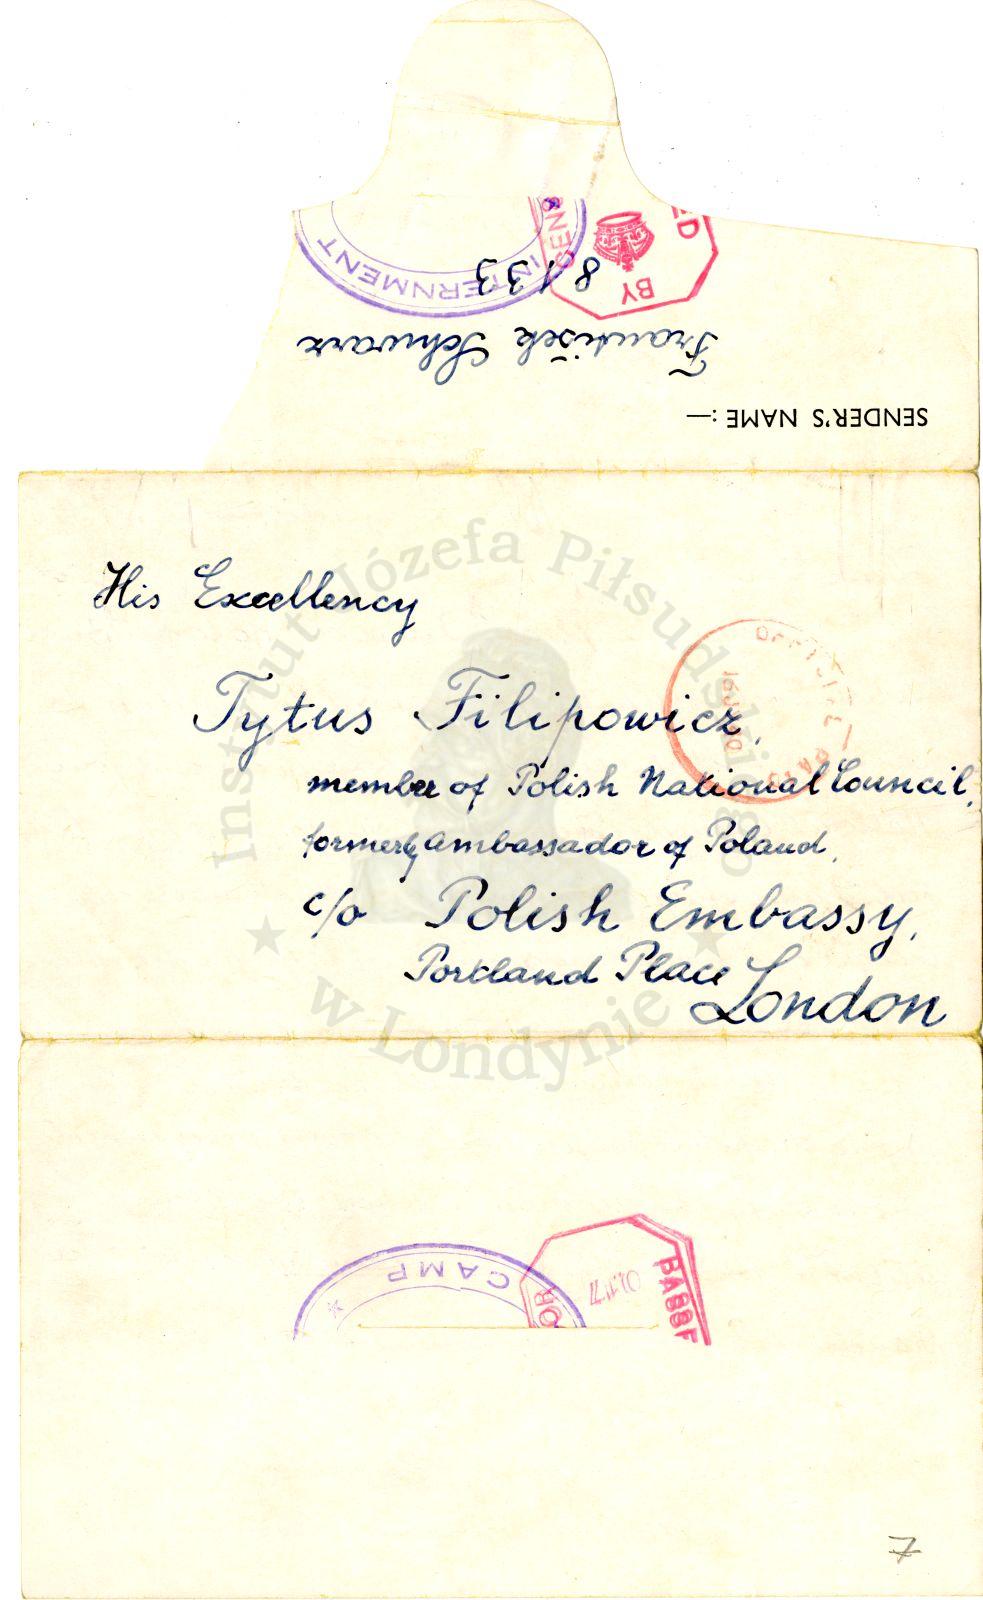 INTERNMENT
CENS
ED
BY
8133
František Schwarz
SENDER'S NAME:—
Instytut Józefa Piłsudskiego
w Londynie
His Excellency
Tytus Filipowicz,
member of Polish National Council,
formerly ambassador of Poland,
c/o Polish Embassy,
Portland Place
London
OFFICIAL PAID
CAMP
7